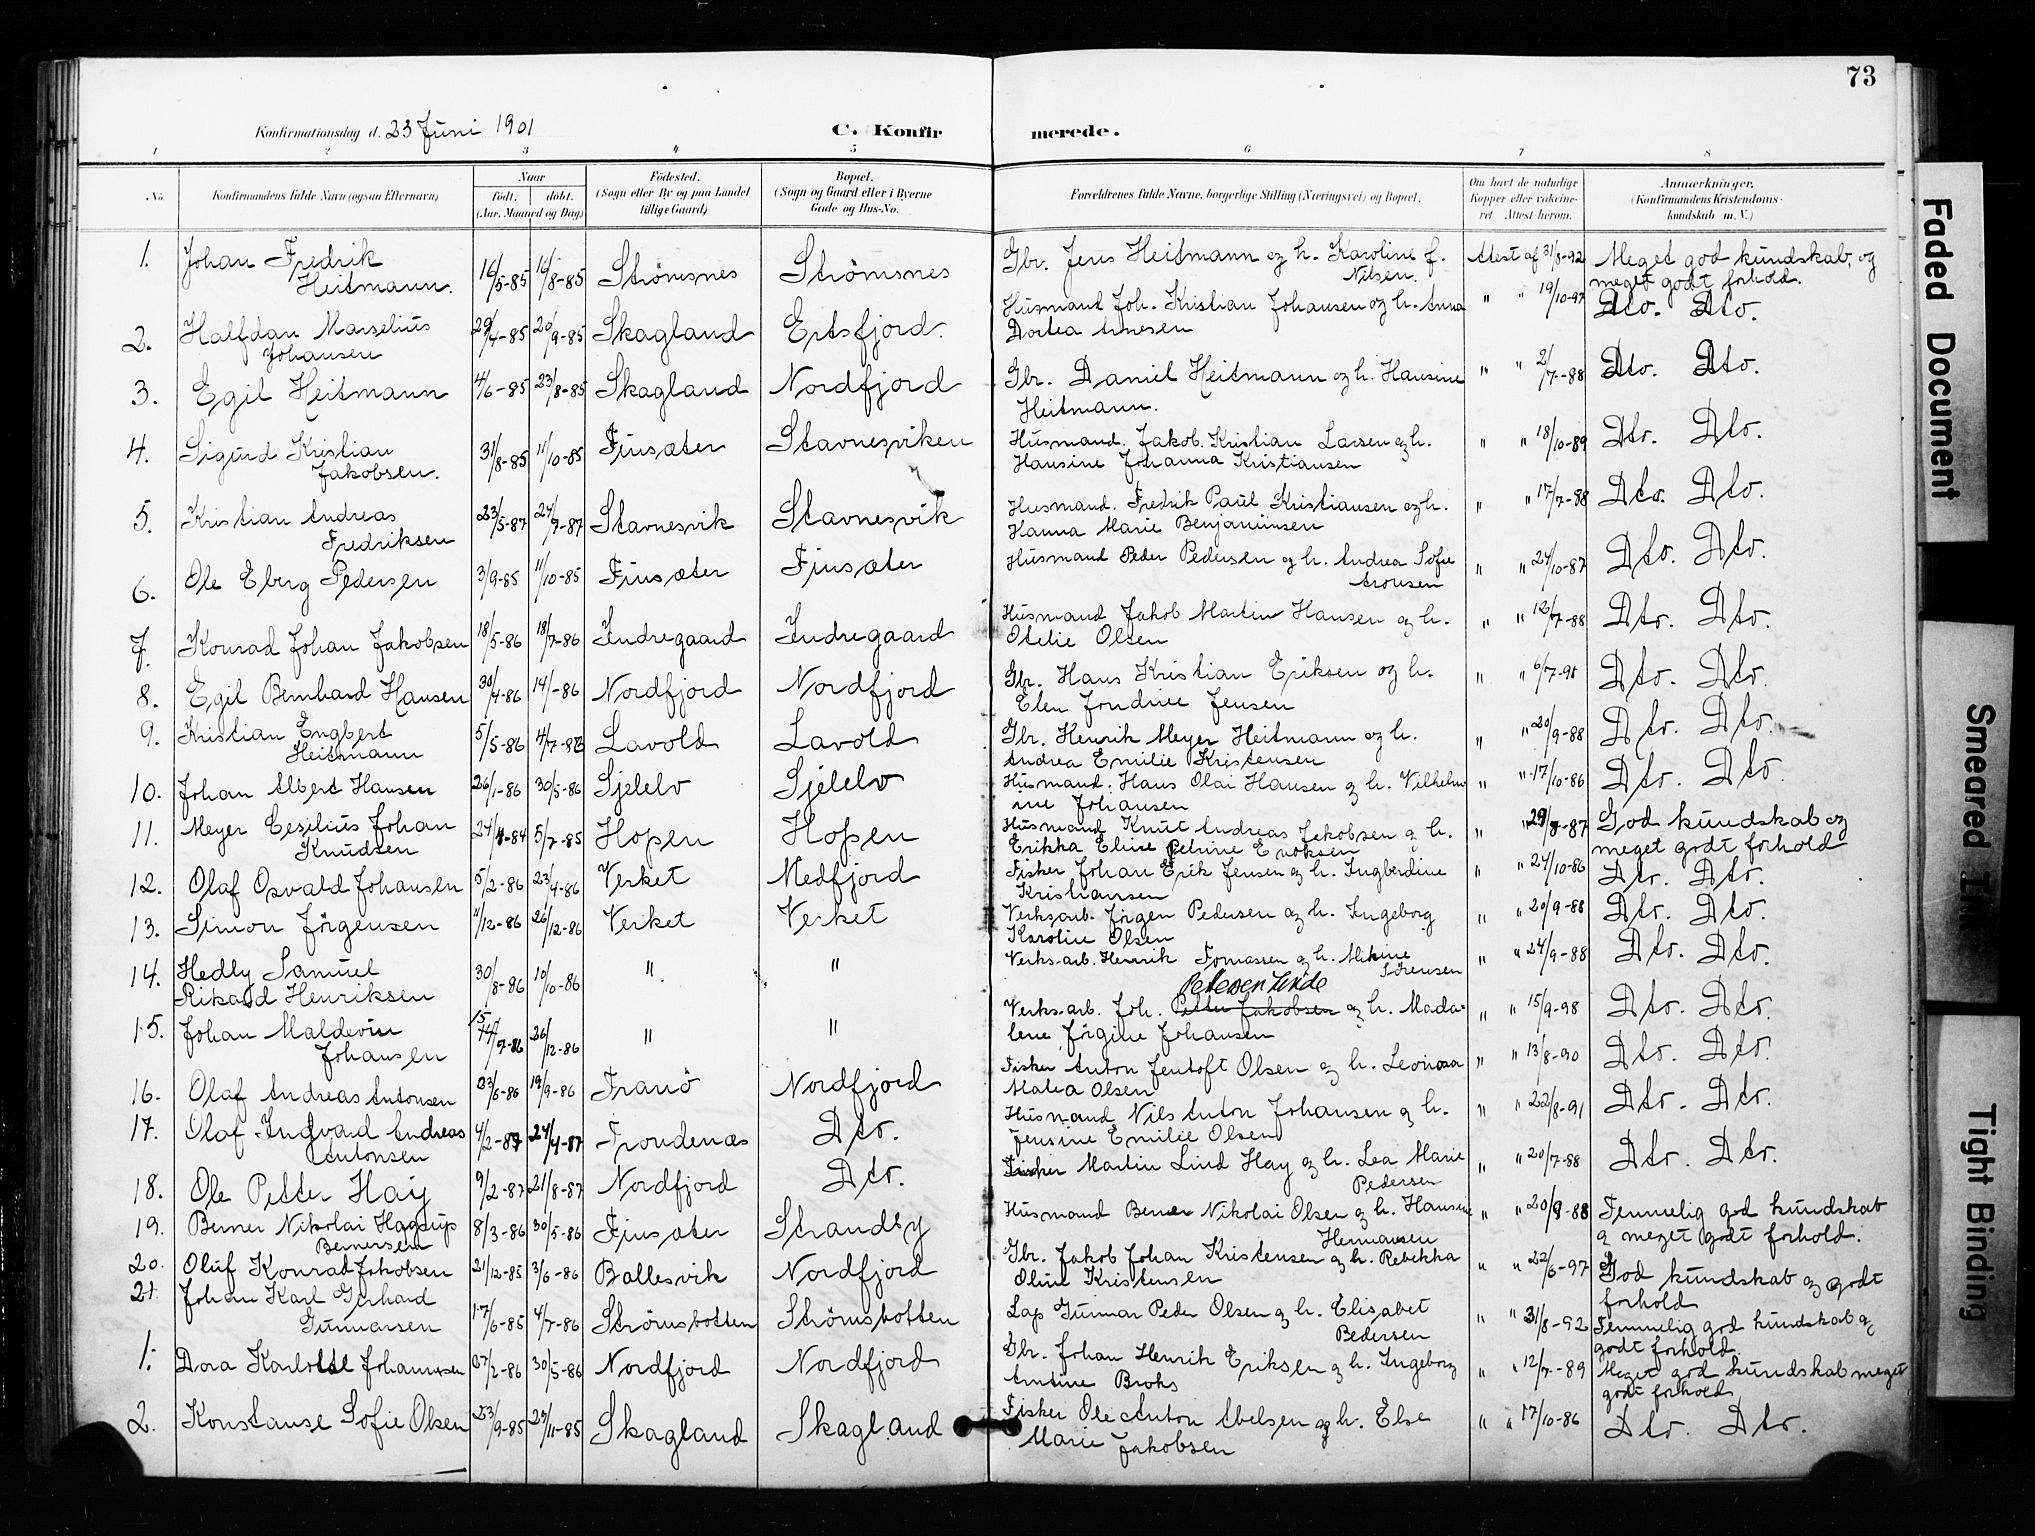 73
Konfirmationsdag d. 23 Juni 1901 C. Konfirmerede.
1 2 3 4 5 6 7 8
No. Konfirmandens fulde Navn (ogsaa Efternavn) Naar født. døbt. (Aar, Maaned og Dag) Födested. (Sogn eller By og paa Landet tillige Gaard) Bopæl. (Sogn og Gaard eller i Byerne Gade og Hus-No. Forældrenes fulde Navne, borgerlige Stilling (Næringsvei) og Bopæl. Om havt de naturlige Kopper eller vakcineret Attest herom. Anmærkninger. (Konfirmandens Kristendomskundskab m. V.)
1. Johan Fredrik Heitmann. 16/5-85 16/8-85 Strömsnes Strömsnes Gbr. Jens Heitmann og h. Karoline f. Nilsen. Attest af 31/8-92 Meget god kundskab, og meget godt forhold.
2. Halfdan Marselius Johansen 29/4-85 20/9-85 Skagland Ertsfjord. Husmand Joh. Kristian Johansen og h. Anna Dortea Arnesen " " 19/10-97 Dto. Dto.
3. Egil Heitmann 4/6-85 23/8-85 Skagland Nordfjord Gbr. Daniel Heitmann og h. Hansine Heitmann. " " 2/7-88 Dto. Dto.
4. Sigurd Kristian Jakobsen. 31/8-85 11/10-85 Finsæter Stavnesviken Husmand. Jakob Kristian Larsen og h. Hansine Johanna Kristiansen " " 18/10-89 Dto. Dto.
5. Kristian Andreas Fredriksen 23/5-87 24/7-87 Stavnesvik Stavnesvik Husmand. Fredrik Paul Kristiansen og h. Hanna Marie Benjaminsen " " 17/7-88 Dto. Dto.
6. Ole Eberg Pedersen 3/9-85 11/10-85 Finsæter Finsæter Husmand Peder Pedersen og h. Andrea Sofie Aronsen " " 24/10-87 Dto. Dto.
7. Konrad Johan Jakobsen 18/5-86 18/7-86 Indregaard Indregaard Husmand Jakob Martin Hansen og h. Otelie Olsen " " 12/7-88 Dto. Dto.
8. Egil Bernhard Hansen 30/4-86 14/-86 Nordfjord Nordfjord Gbr. Hans Kristian Eriksen og h. Elen Jendine Jensen " " 6/7-91 Dto. Dto.
9. Kristian Engbert Heitmann 5/5-86 4/7-86 Lavold Lavold Gbr. Henrik Meyer Heitmann og h. Andrea Emilie Kristensen " " 20/9-88 Dto. Dto.
10. Johan Albert Hansen 26/1-86 30/5-86 Sjelelv Sjelelv Husmand. Hans Olai Hansen og h. Vilhelmine Johansen " " 17/10-86 Dto. Dto.
11. Meyer Cesilius Johan Knudsen 24/4-84 5/7-85 Hopen Hopen Husmand Knut Andreas Jakobsen og h. Erikka Eline Petrine Enoksen " " 29/8-87 God kundskab og meget godt forhold
12. Olaf Osvald Johansen 5/2-86 23/4-86 Verket Medfjord Fisker Johan Erik Jensen og h. Ingberdine Kristiansen " " 24/10-86 Dto. Dto.
13. Simon Jörgensen 11/12-86 26/12-86 Verket Verket Verksarb. Jörgen Pedersen og h. Ingeborg Karoline Olsen " " 20/9-88 Dto. Dto.
14. Hedly Samuel Rikard Henriksen 30/8-86 10/10-86 " " Verks-arb. Henrik Tomasen og h. Sörensen " " 24/9-88 Dto. Dto.
15. Johan Maldevin Johansen 15/7-86 26/12-86 " " Verks-arb. Joh. Petter Jakobsen og h. Madalene Jörgine Johansen " " 15/9-98 Dto. Dto.
16. Olaf Andreas Antonsen 23/6-86 19/9-86 Tranö Nordfjord Fisker Anton Jentoft Olsen og h. Leonora Matea Olsen " " 13/8-90 Dto. Dto.
17. Olaf Ingvard Andreas Antonsen 4/2-87 24/4-87 Trondenæs Dto. Husmand Nils Anton Johansen og h. Jensine Emilie Olsen " " 22/8-91 Dto. Dto.
18. Ole Petter Hay 9/2-87 21/8-87 Nordfjord Dto. Fisker Martin Lind Hay og h. Lea Marie Pedersen " " 20/7-88 Dto. Dto.
19. Berner Nikolai Hagerup Bernersen 8/3-86 30/5-86 Finsæter Strandby Husmand Berner Nikolai Olsen og h. Hansine Hermansen " " 20/9-88 Temmelig god kundskab og meget godt forhold.
20. Oluf Konrad Jakobsen 21/12-85 3/6-86 Ballesvik Nordfjord Gbr. Jakob Johan Kristensen og h. Rebekka Oline Kristensen " " 22/6-97 God kundskab og godt forhold
21. Johan Karl Gerhard Gunnarsen 17/6-85 4/7-86 Strömsbotten Strömsbotten Lap Gunnar Peder Olsen og h. Elisabet Pedersen " " 31/8-92 Temmelig god kundskab og godt forhold.
1. Dora Johannesen 27/2-86 30/5-86 Nordfjord Nordfjord Gbr. Johan Henrik Eriksen og h. Ingeborg Antine Brohs " " 12/7-89 Meget god kundskab meget godt forhold
2. Konstanse Sofie Olsen 23/9-85 29/11-85 Skagland Skagland Fisker Ole Anton Abelsen og h. Else Marie Jakobsen " " 17/10-86 Dto. Dto.
Faded Document
Smeared Ink
Tight Binding